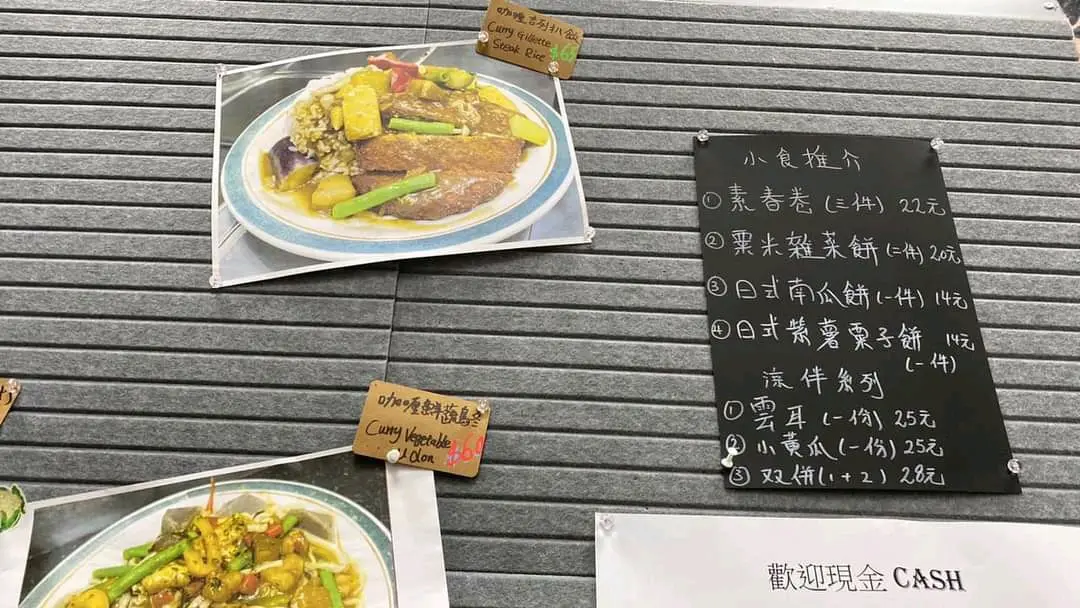 咖喱吉列扒飯
Curry Gillette
Steak Rice
小食推介
① 素春卷 (三件) 22元
② 粟米雜菜餅 (二件) 20元
③ 日式南瓜餅 (一件) 14元
④ 日式紫薯栗子餅 14元
(一件)
涼伴系列
① 雲耳 (一份) 25元
② 小黃瓜 (一份) 25元
③ 双併 (1+2) 28元
咖喱鮮蔬烏冬
Curry Vegetable
Udon
歡迎現金 CASH